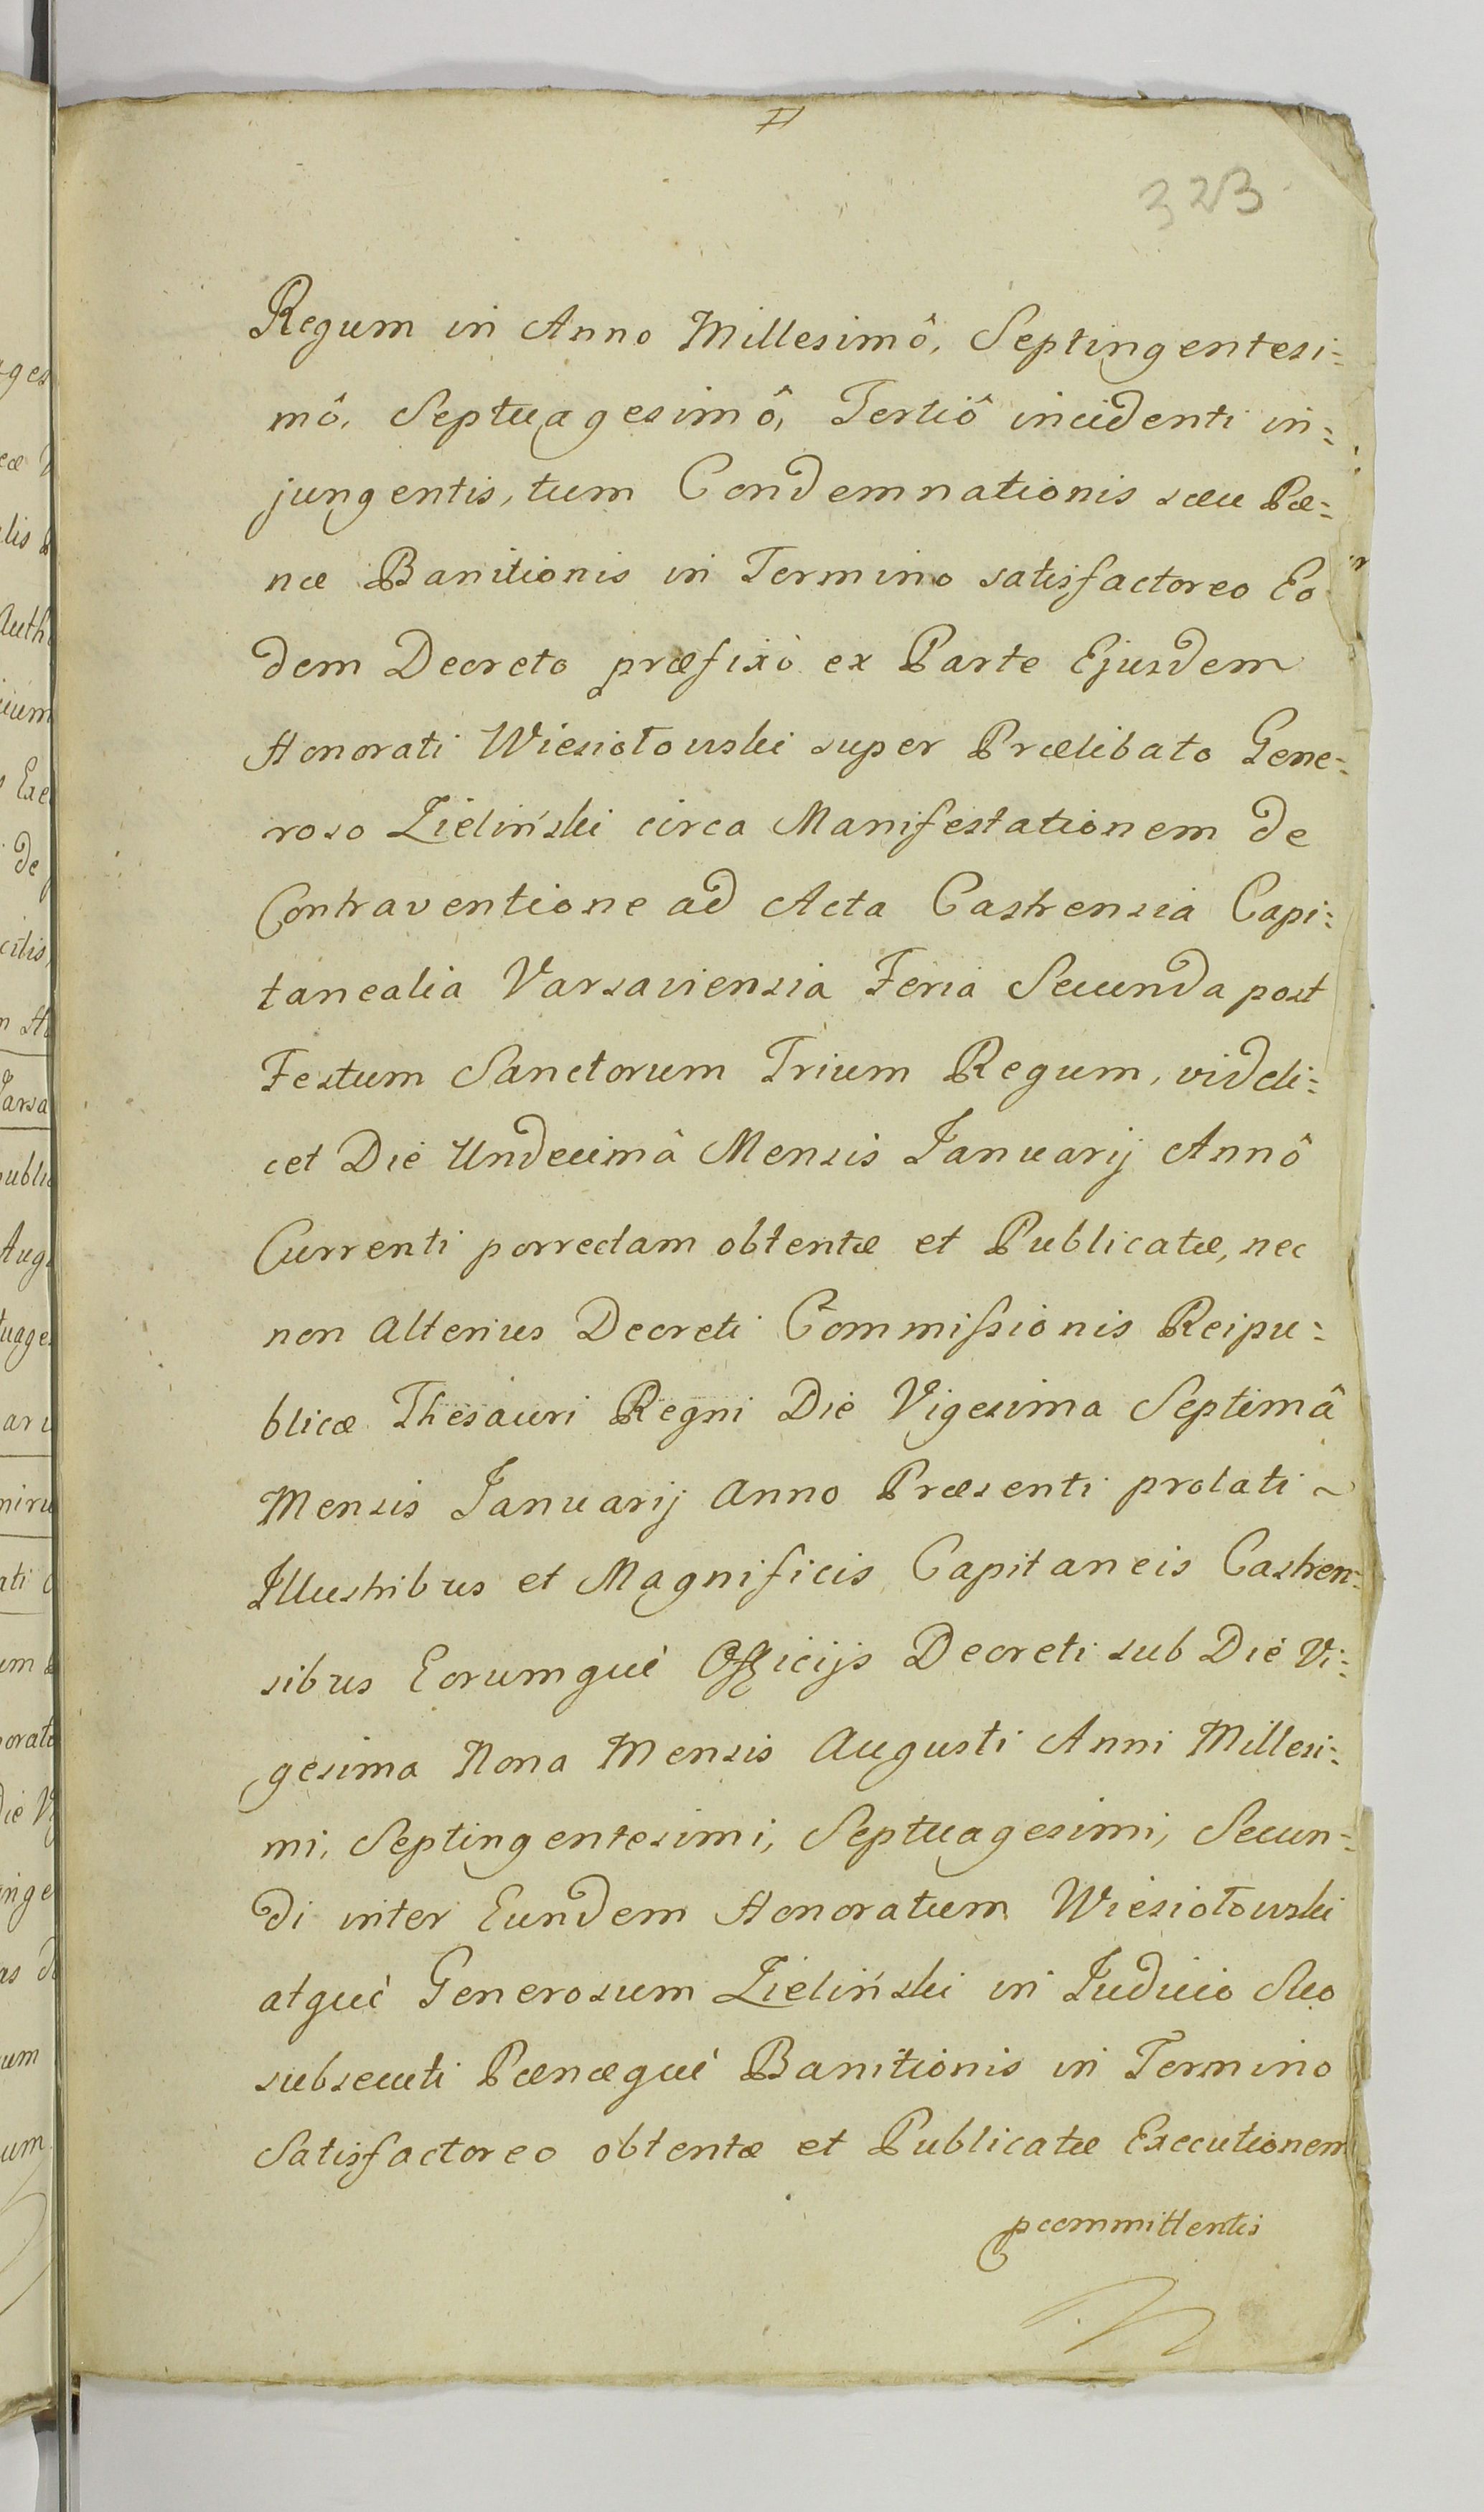 323
Regum in Anno Millesimô, Septingentesi=
mô, Septuagesimô, Tertiô incidenti in=
jungentis, tum Condemnationis sæu Pæ=
næ Banitionis in Termino satisfactoreo Eo
dem Decreto præfixò ex Parte Ejusdem
Honorati Wiesiołowski super Prælibato Gene=
roso Zieliński circa Manifestationem de
Contraventione ad Acta Castrensia Capi=
tanealia Varsaviensia Feria Secunda post
Festum Sanctorum Trium Regum, videli=
cet Die Undecimâ Mensis Januarij Annô
Currenti porrectam obtentæ et Publicatæ, nec
non alterius Decreti Commissionis Reipu=
blicæ Thesauri Regni Die Vigesima Septimâ
Mensis Januarij anno Præsenti prolati ~
Illustribus et Magnificis Capitaneis Castren=
sibus Eorumquè Officijs Decreti sub Die Vi=
gesima Nona Mensis Augusti Anni Millesi=
mi, Septingentesimi, Septuagesimi, Secun=
di inter Eundem Honoratum Wiesiołowski
atquè Generosum Zieliński in Judicio Suo
subsecuti Pænæquè Banitionis in Termino
Satisfactoreo obtentæ et Publicatæ Executionem
committentis